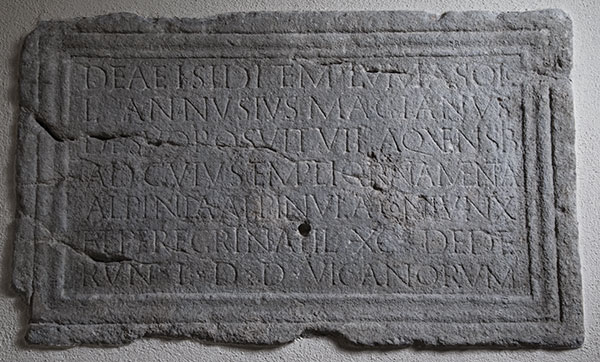 DEAE ISIDI TEMPLVM A SOLO
L ANNVSIVS MAGIANVS
DE SVO POSVIT VIK AQVENSIB
AD CVIVS TEMPLI ORNAMENTA
ALPINIA ALPINVLA CONIVNX
ET PEREGRINA FIL X C DEDE
RVNT L D D VICANORVM